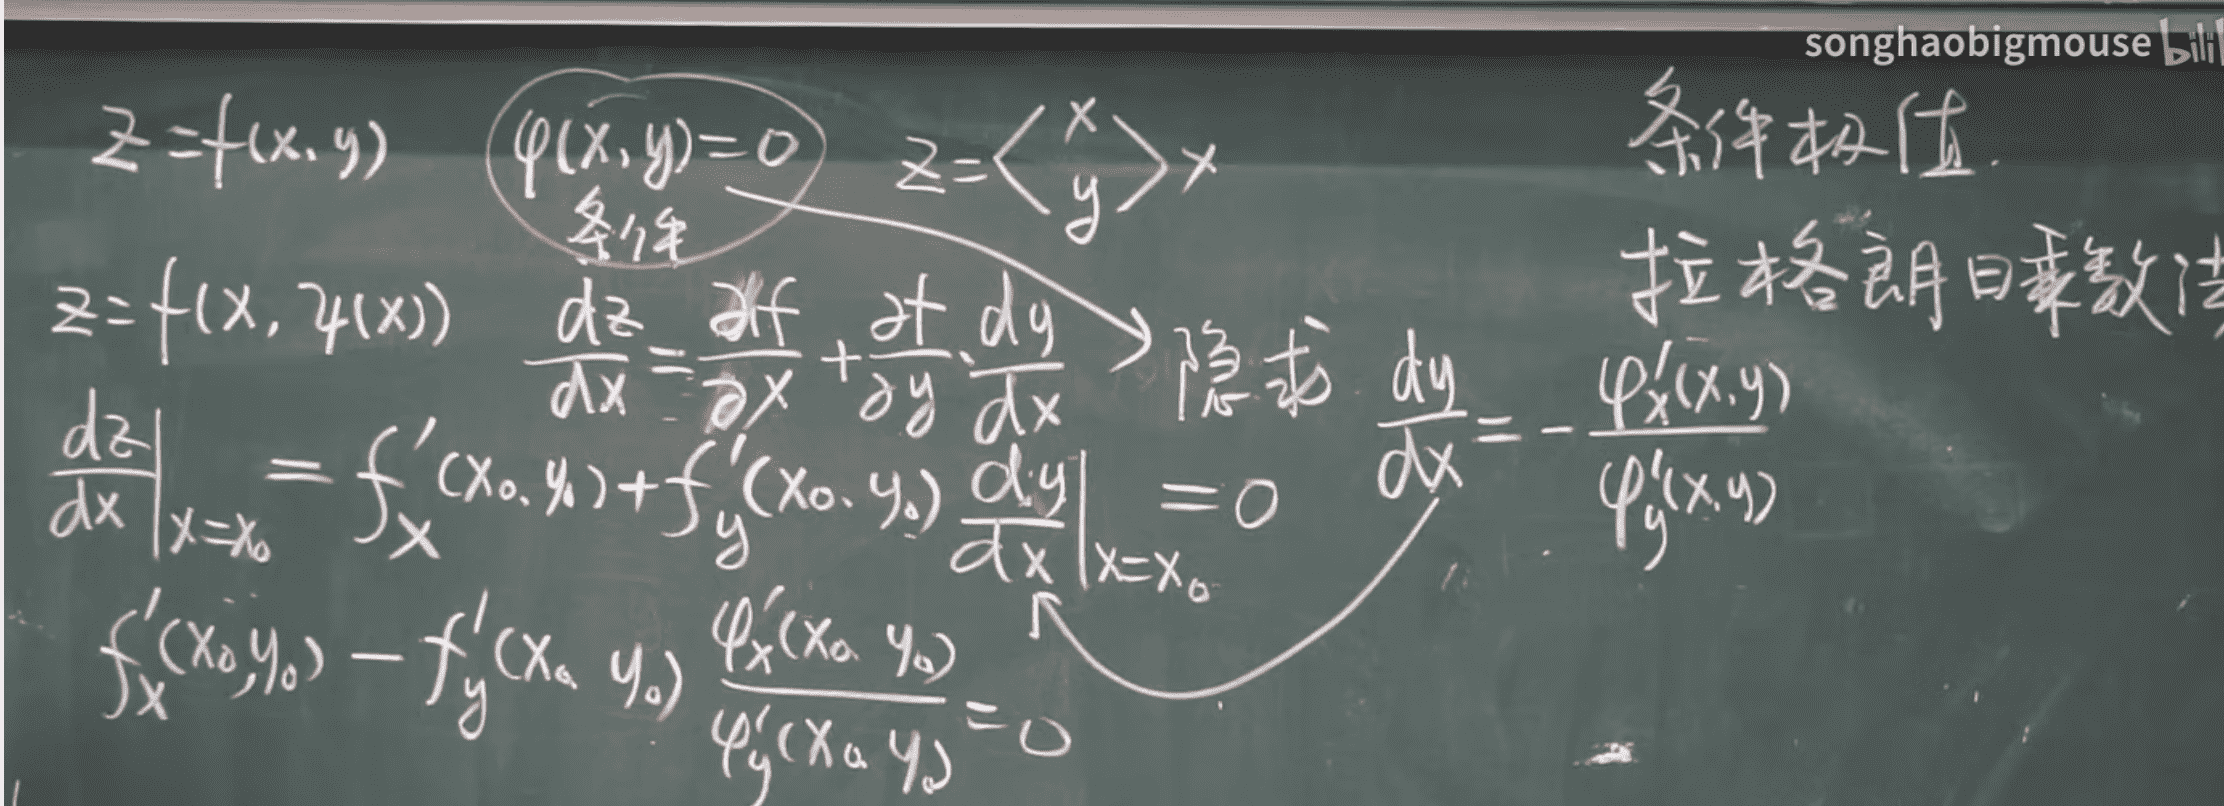 songhaobigmouse bili
z=f(x,y) φ(x,y)=0 z=<x y>x 条件极值.
条件
拉格朗日乘数法
z=f(x,ψ(x)) dz/dx=∂f/∂x+∂f/∂y·dy/dx 隐求 dy/dx=-φ'x(x,y)/φ'y(x,y)
dz/dx|x=x₀ =f'x(x₀,y₀)+f'y(x₀,y₀) dy/dx|x=x₀ =0
f'x(x₀,y₀)-f'y(x₀ y₀) φ'x(x₀ y₀)/φ'y(x₀ y₀)=0